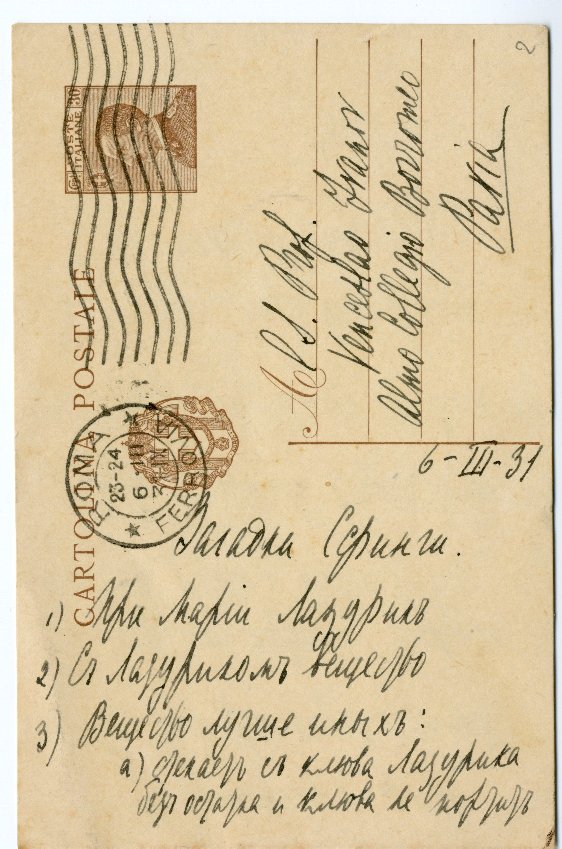 2
POSTE ITALIANE 30
CARTOLINA POSTALE
A Ch. Prof.
Venceslao Ivanov
Almo Collegio Borromeo
Pavia
23-24
6 III
FERROVIA
6-III-31
Загадки Сфинги.
1) При Маріи Лазурикъ
2) Съ Лазурикомъ вещество
3) Вещество лучше иныхъ:
а) стекаетъ съ клюва Лазурика
безъ остатка и клюва не портитъ